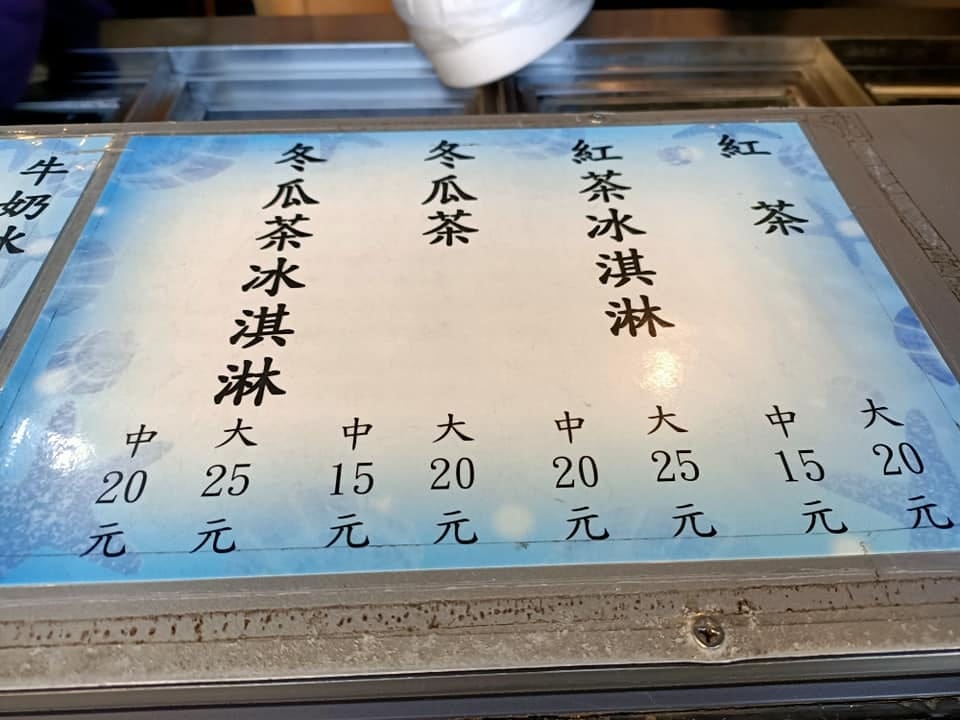 紅茶
中 15 元
大 20 元
紅茶冰淇淋
中 20 元
大 25 元
冬瓜茶
中 15 元
大 20 元
冬瓜茶冰淇淋
中 20 元
大 25 元
牛奶冰